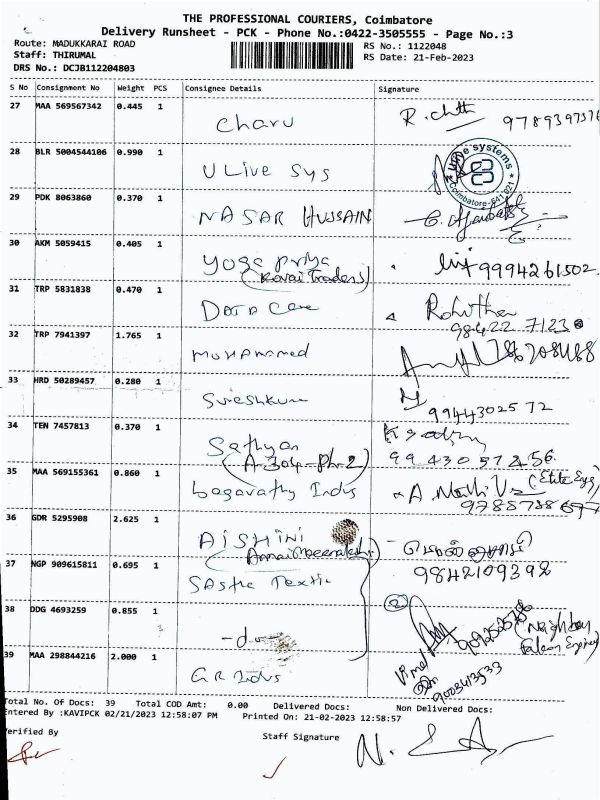 THE PROFESSIONAL COURIERS, Coimbatore
Delivery Runsheet - PCK - Phone No.:0422-3505555 - Page No.:3
Route: MADUKKARAI ROAD RS No.: 1122048
Staff: THIRUMAL RS Date: 21-Feb-2023
DRS No.: DCJB112204803
S No Consignment No Weight PCS Consignee Details Signature
27 MAA 569567342 0.445 1 Charu
28 BLR 5004544106 0.990 1 ULive Sys
Coimbatore-641 021
29 PDK 8063860 0.370 1 NASAR HUSSAIN
30 AKM 5059415 0.405 1 Yoga priya 9994261502
(Kovai Traders)
31 TRP 5831838 0.470 1 Data Care
98422 7123
32 TRP 7941397 1.765 1 Mohammed
33 HRD 50289457 0.280 1 Sureshkum
9944302572
34 TEN 7457813 0.370 1 Sathyan
(A-304-Ph-2) 9943057256
35 MAA 569155361 0.860 1 bagavathy Indus
36 GDR 5295908 2.625 1 AISHINI
37 NGP 909615811 0.695 1 SAstha Textile 9842109392
38 DDG 4693259 0.855 1 -do-
39 MAA 298844216 2.000 1 GR Indus 9003413533
Total No. Of Docs: 39 Total COD Amt: 0.00 Delivered Docs: Non Delivered Docs:
Entered By :KAVIPCK 02/21/2023 12:58:07 PM Printed On: 21-02-2023 12:58:57
Verified By Staff Signature